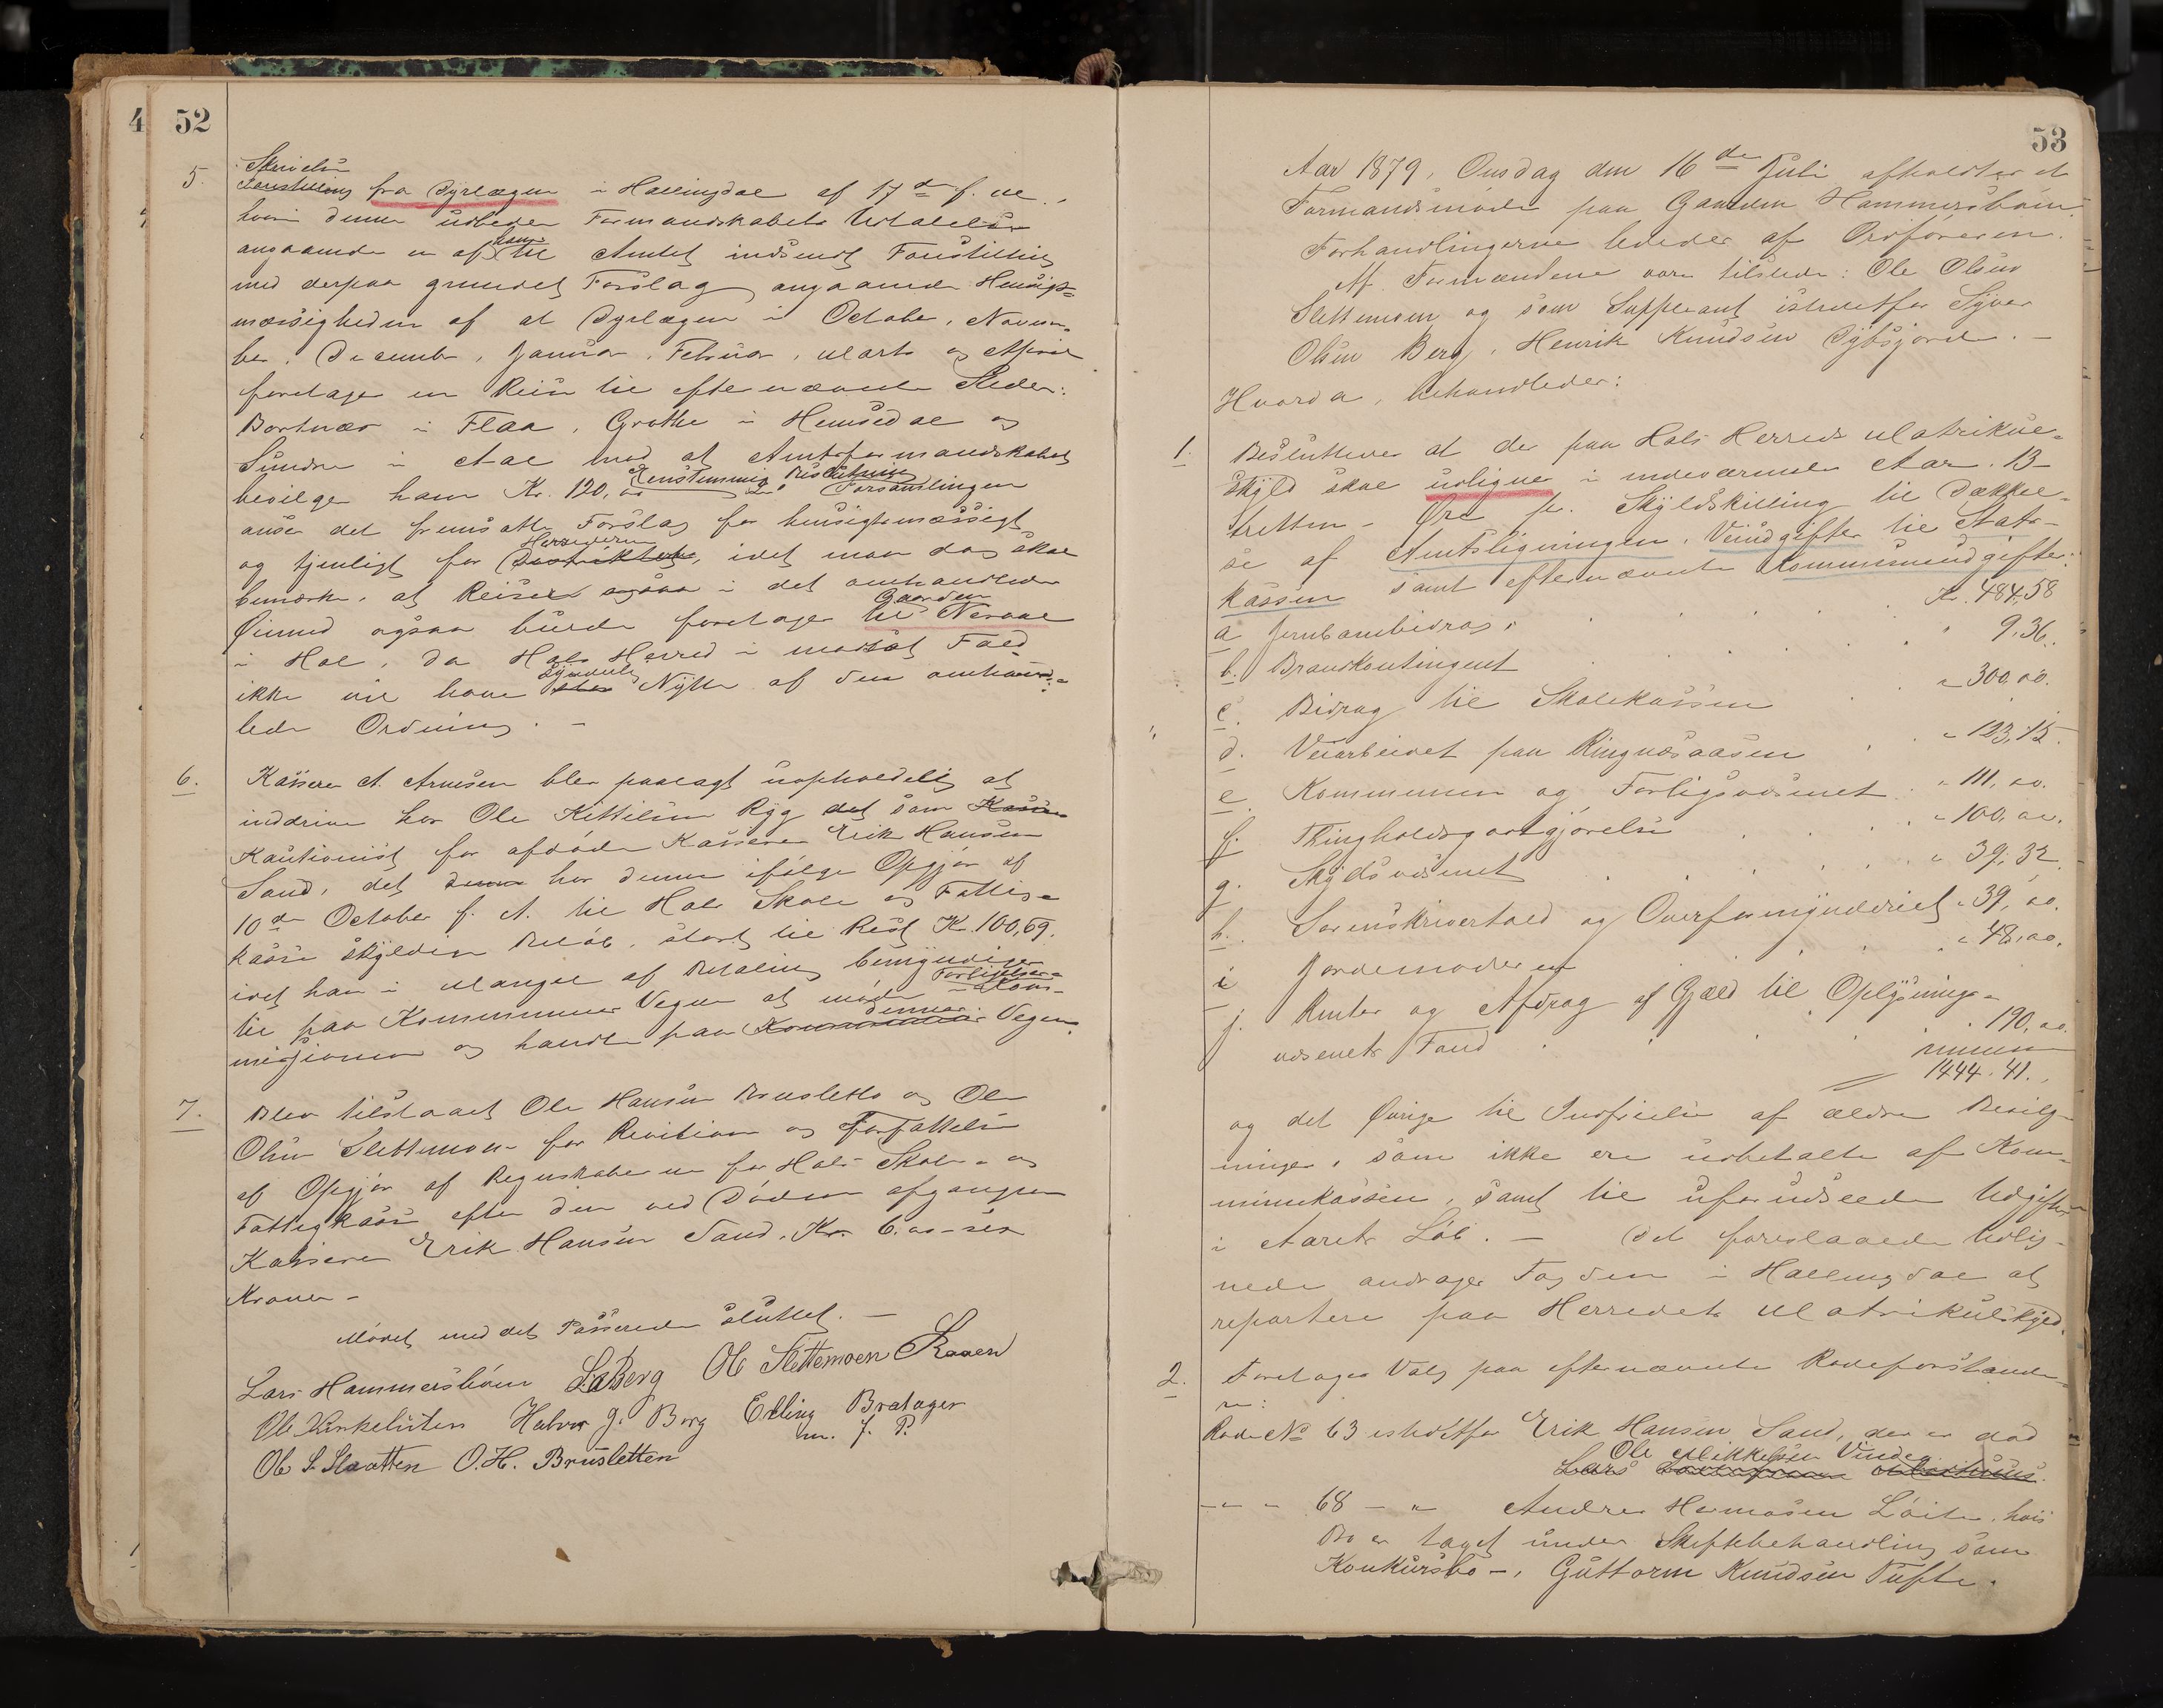 4 52
5. Skrivelse
Forestilling fra Dyrlægen i Hallingdal af 17de f. M.,
hvori denne udbeder Formandskabets Udtalelse
angaaende en af ham til Amtet indsendt Forestilling
med derpaa grundet Forslag angaaende Hensigts-
mæssigheden af at Dyrlægen i October, Novem-
ber, December, Januar, Februar, Marts og April
foretager en Reise til efternævnte Steder:
Bortnæs i Flaa, Grøthe i Hemsedal og
Sundre i Aal mod at Amtsformandskabet
bevilger ham Kr. 120,00 Eenstemmig Beslutning: Forsamlingen
anser det fremsatte Forslag for hensigtsmæssigt
og tjenligt for Distriktet Herrederne, idet man dog skal
bemærke, at Reisen ogsaa i det omhandlede
Øiemed ogsaa burde foretages til Gaarden Neraal
i Hol, da Hols Herred i modsat Fald
ikke vil have stor synderlig Nytte af den omhand-
lede Ordning. —
6. Kasserer A. Arnesen blev paalagt uopholdelig at
inddrive hos Ole Kittilsen Ryg det som Kasse
Kautionist for afdøde Kasserer Erik Hansen
Sand, det denne har denne ifølge Opgjør af
10de October f. A. til Hols Skole og Fattig-
kasse skyldige Beløb, stort til Rest Kr. 100,69.
idet han i Mangel af Betaling bemyndiges
til paa Kommunens Vegne at møde i Forligelses-Kom-
missionen og handle paa Kommunens dennes Vegne.
7. Blev tilstaaet Ole Hansen Brusletto og Ole
Olsen Slettemoen for Revision og Forfattelse
af Opgjør af Regnskaberne for Hols Skole- og
Fattigkasse efter den ved Døden afgangne
Kasserer Erik Hansen Sand, Kr. 6.00 - sex
Kroner -
Mødet med det Passerede sluttet. —
Lars Hammersbøen S. O. Berg Ol Slettemoen Raaen
Ole Kirkeluten Halvor J. Berg Elling Bratager
m. f. P.
Ole S. Slaatten O. H. Brusletten
53
Aar 1879, Onsdag den 16de Juli afholdtes et
Formandsmøde paa Gaarden Hammersbøen.
Forhandlingerne lededes af Ordføreren.
Af Formændene vare tilstede: Ole Olsen
Slettemoen og som Suppleant istedetfor Syver
Olsen Berg, Henrik Knudsen Dybsjord. —
Hvorda, behandledes:
1. Besluttedes at der paa Hols Herreds Matrikul-
skyld skal udlignes i indeværende Aar. 13-
tretten - Øre pr. Skyldskilling til Dækkel-
se af Amtsligningen, Veiudgifter til Stats-
kassen samt efternævnte Kommuneudgifter:
a Jernbanebidrag, Kr. 484,58
b. Brandkontingent " 9,36.
c. Bidrag til Skolekassen " 300,00.
d. Veiarbeidet paa Ringnesaasen " 123,15.
e Kommunen og Forligsvæsnet " 111,00.
f. Thingholdsgodtgjørelse " 100,00.
g. Skydsvæsnet " 39,32
h. Sorenskriverhold og Overformynderiet " 39,00.
i Jordemoderen " 48,00.
j. Renter og Afdrag af Gjæld til Oplysnings-
væsenets Fond " 190,00.
1444.41.
og det Øvrige til Indfrielse af ældre Bevilg-
ninger, som ikke ere udbetalte af Kom-
munekassen, samt til uforudseede Udgifter
i Aarets Løb. — Det foreslaaede Udlig-
nede andrages Fogden i Hallingdal at
repartere paa Herredets Matrikulskyld.
2. Foretoges Valg paa efternævnte Rodeforstande-
re:
Rode No 63 istedetfor Erik Hansen Sand, der er død
Ole Mikkelsen Vinde
Lars
— " — 68 — " Andres Hermosen Løite, hvis
Bo er taget under Skiftebehandling som
Konkursbo —, Guttorm Knudsen Tufte.